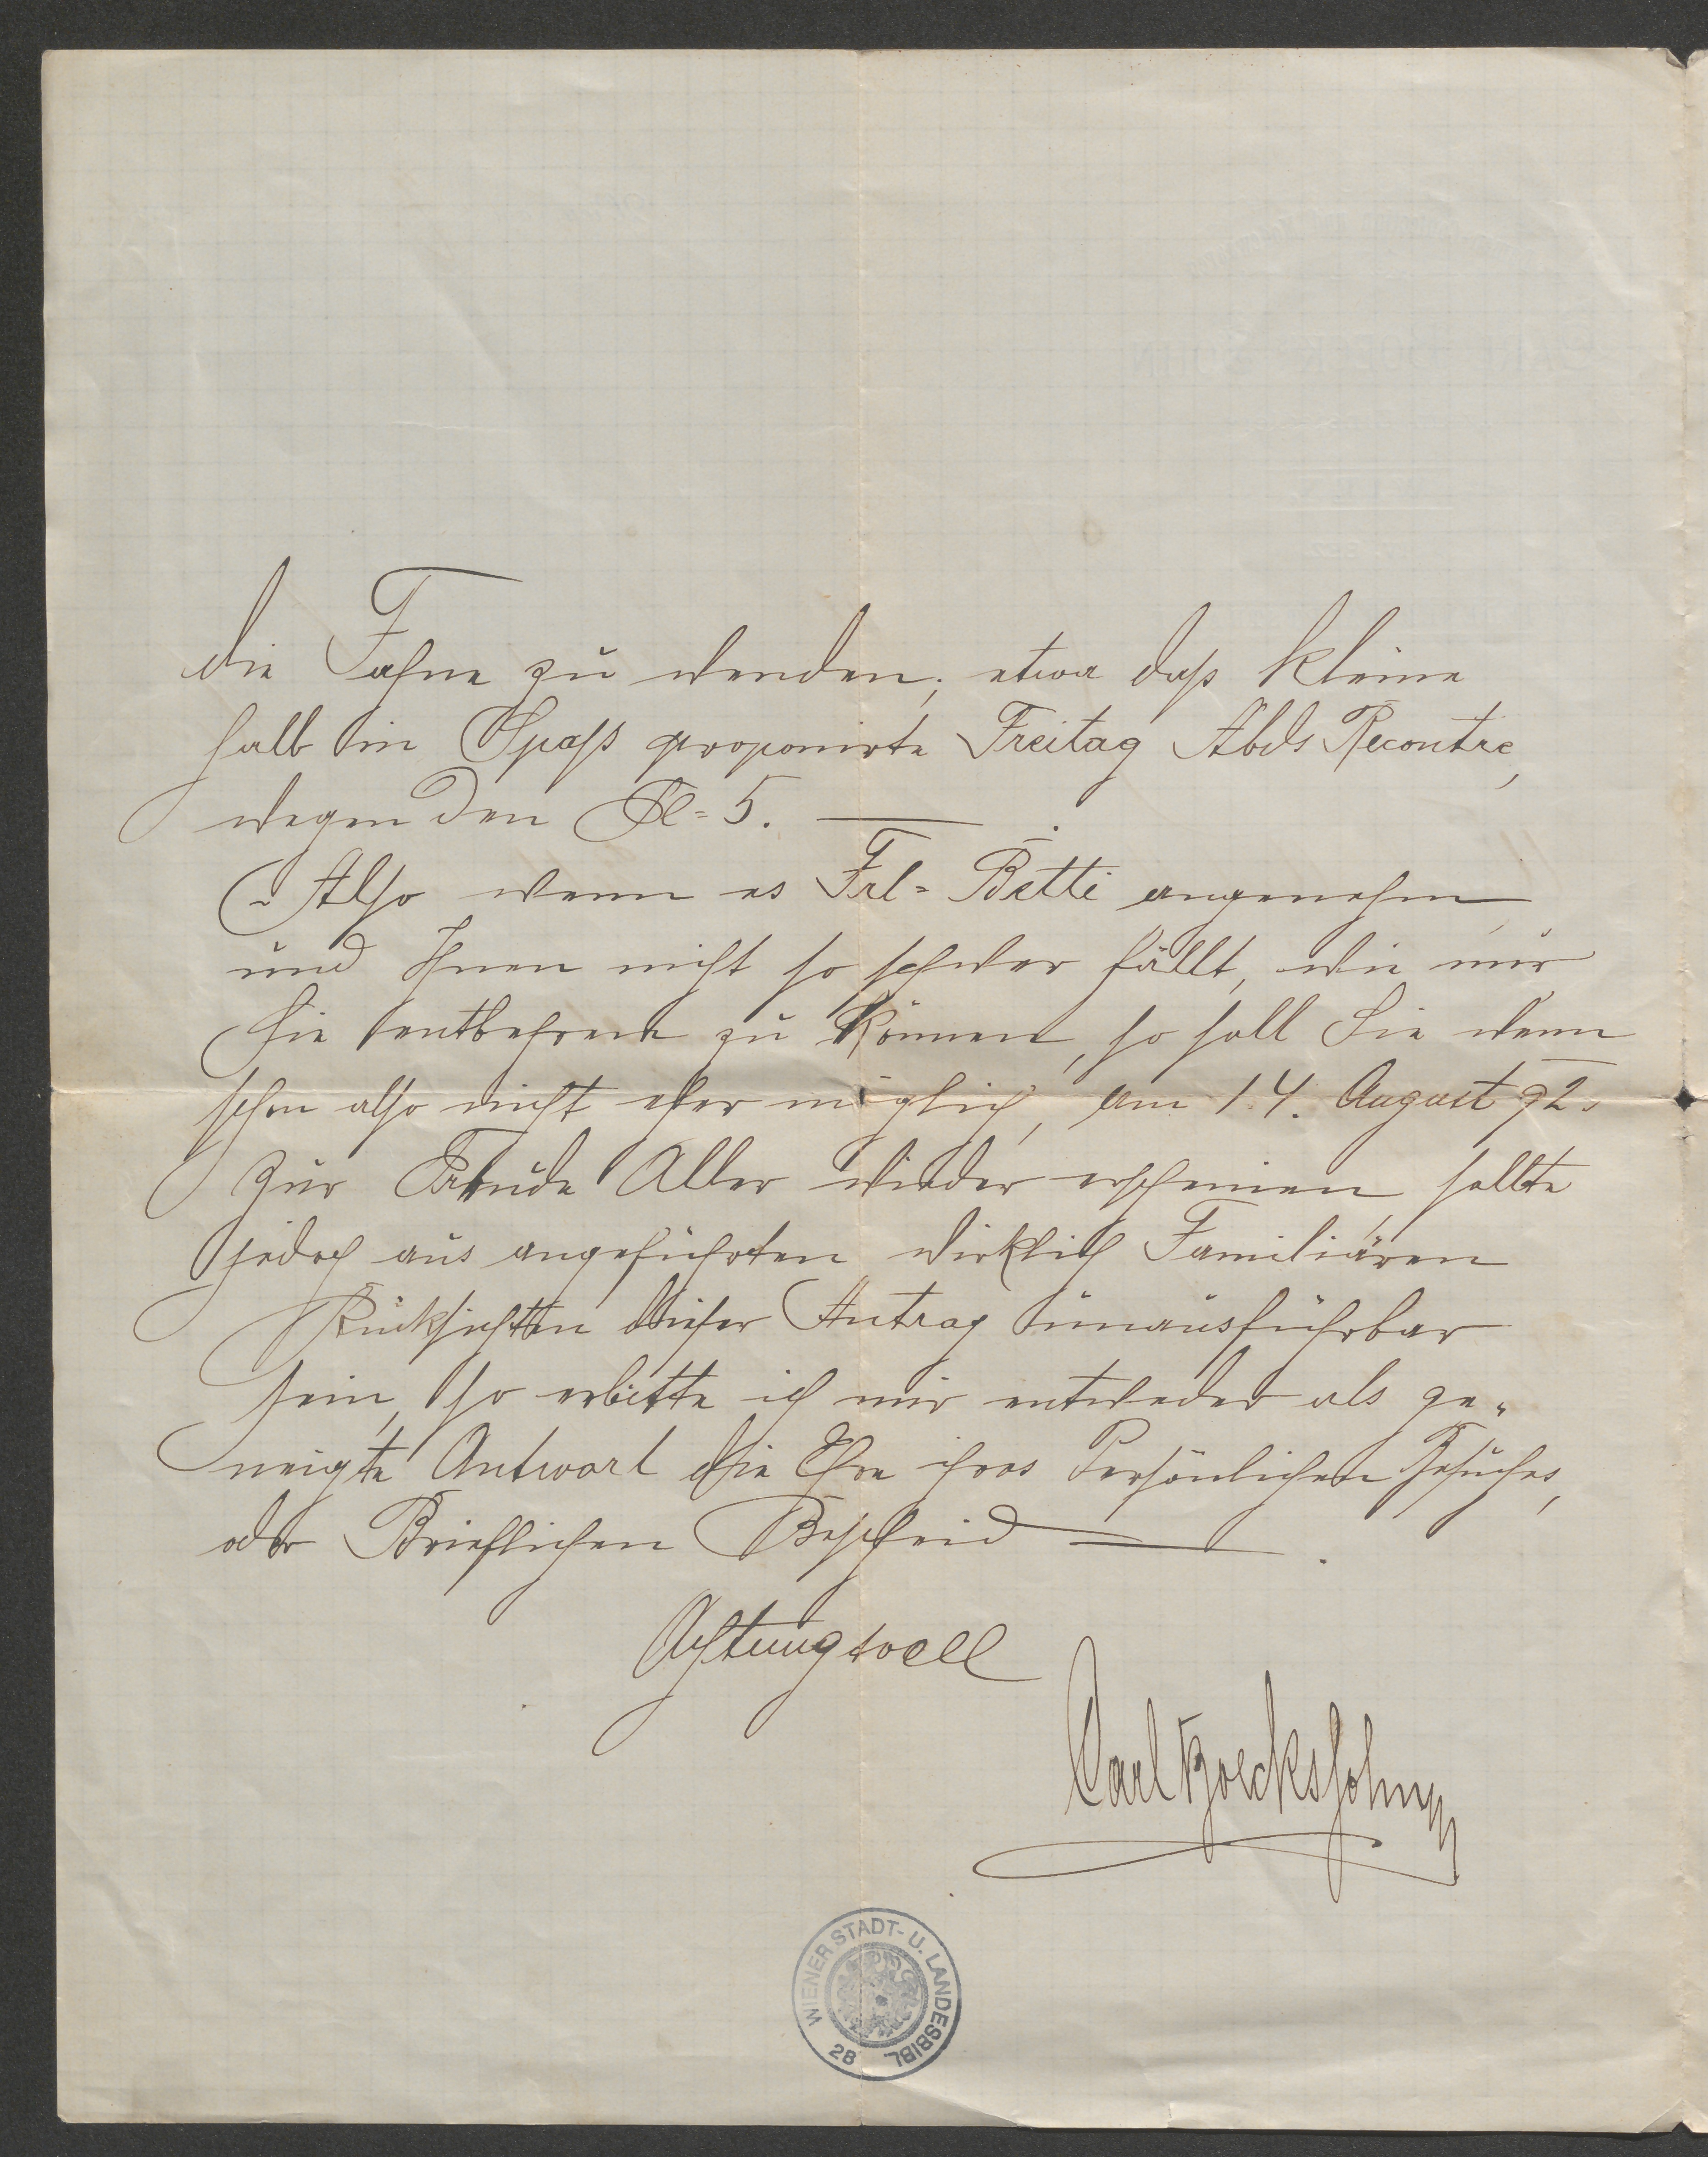 die Fahne zu wenden; etwa daß kleine
halb in Spaß proponirte Freitag Abds Recontre,
wegen den Fl= 5. —
Also wenn es Frl= Betti angenehm
und Ihnen nicht so schwer fällt, wie mir
Sie entbehren zu können, so soll Sie wenn
schon also nicht eher möglich, am 14. August 92.
zur Freude Aller wieder erscheinen, sollte
jedoch aus angeführten wirklich Familiären
Rücksichten dieser Antrag unausführbar
sein, so erbitte ich mir entweder als ge„
neigte Antwort die Ehre ihres Persönlichen
oder Brieflichen Bescheid —.
Achtungsvoll
Carl
WIENER STADT- U. LANDESBIBL.
28